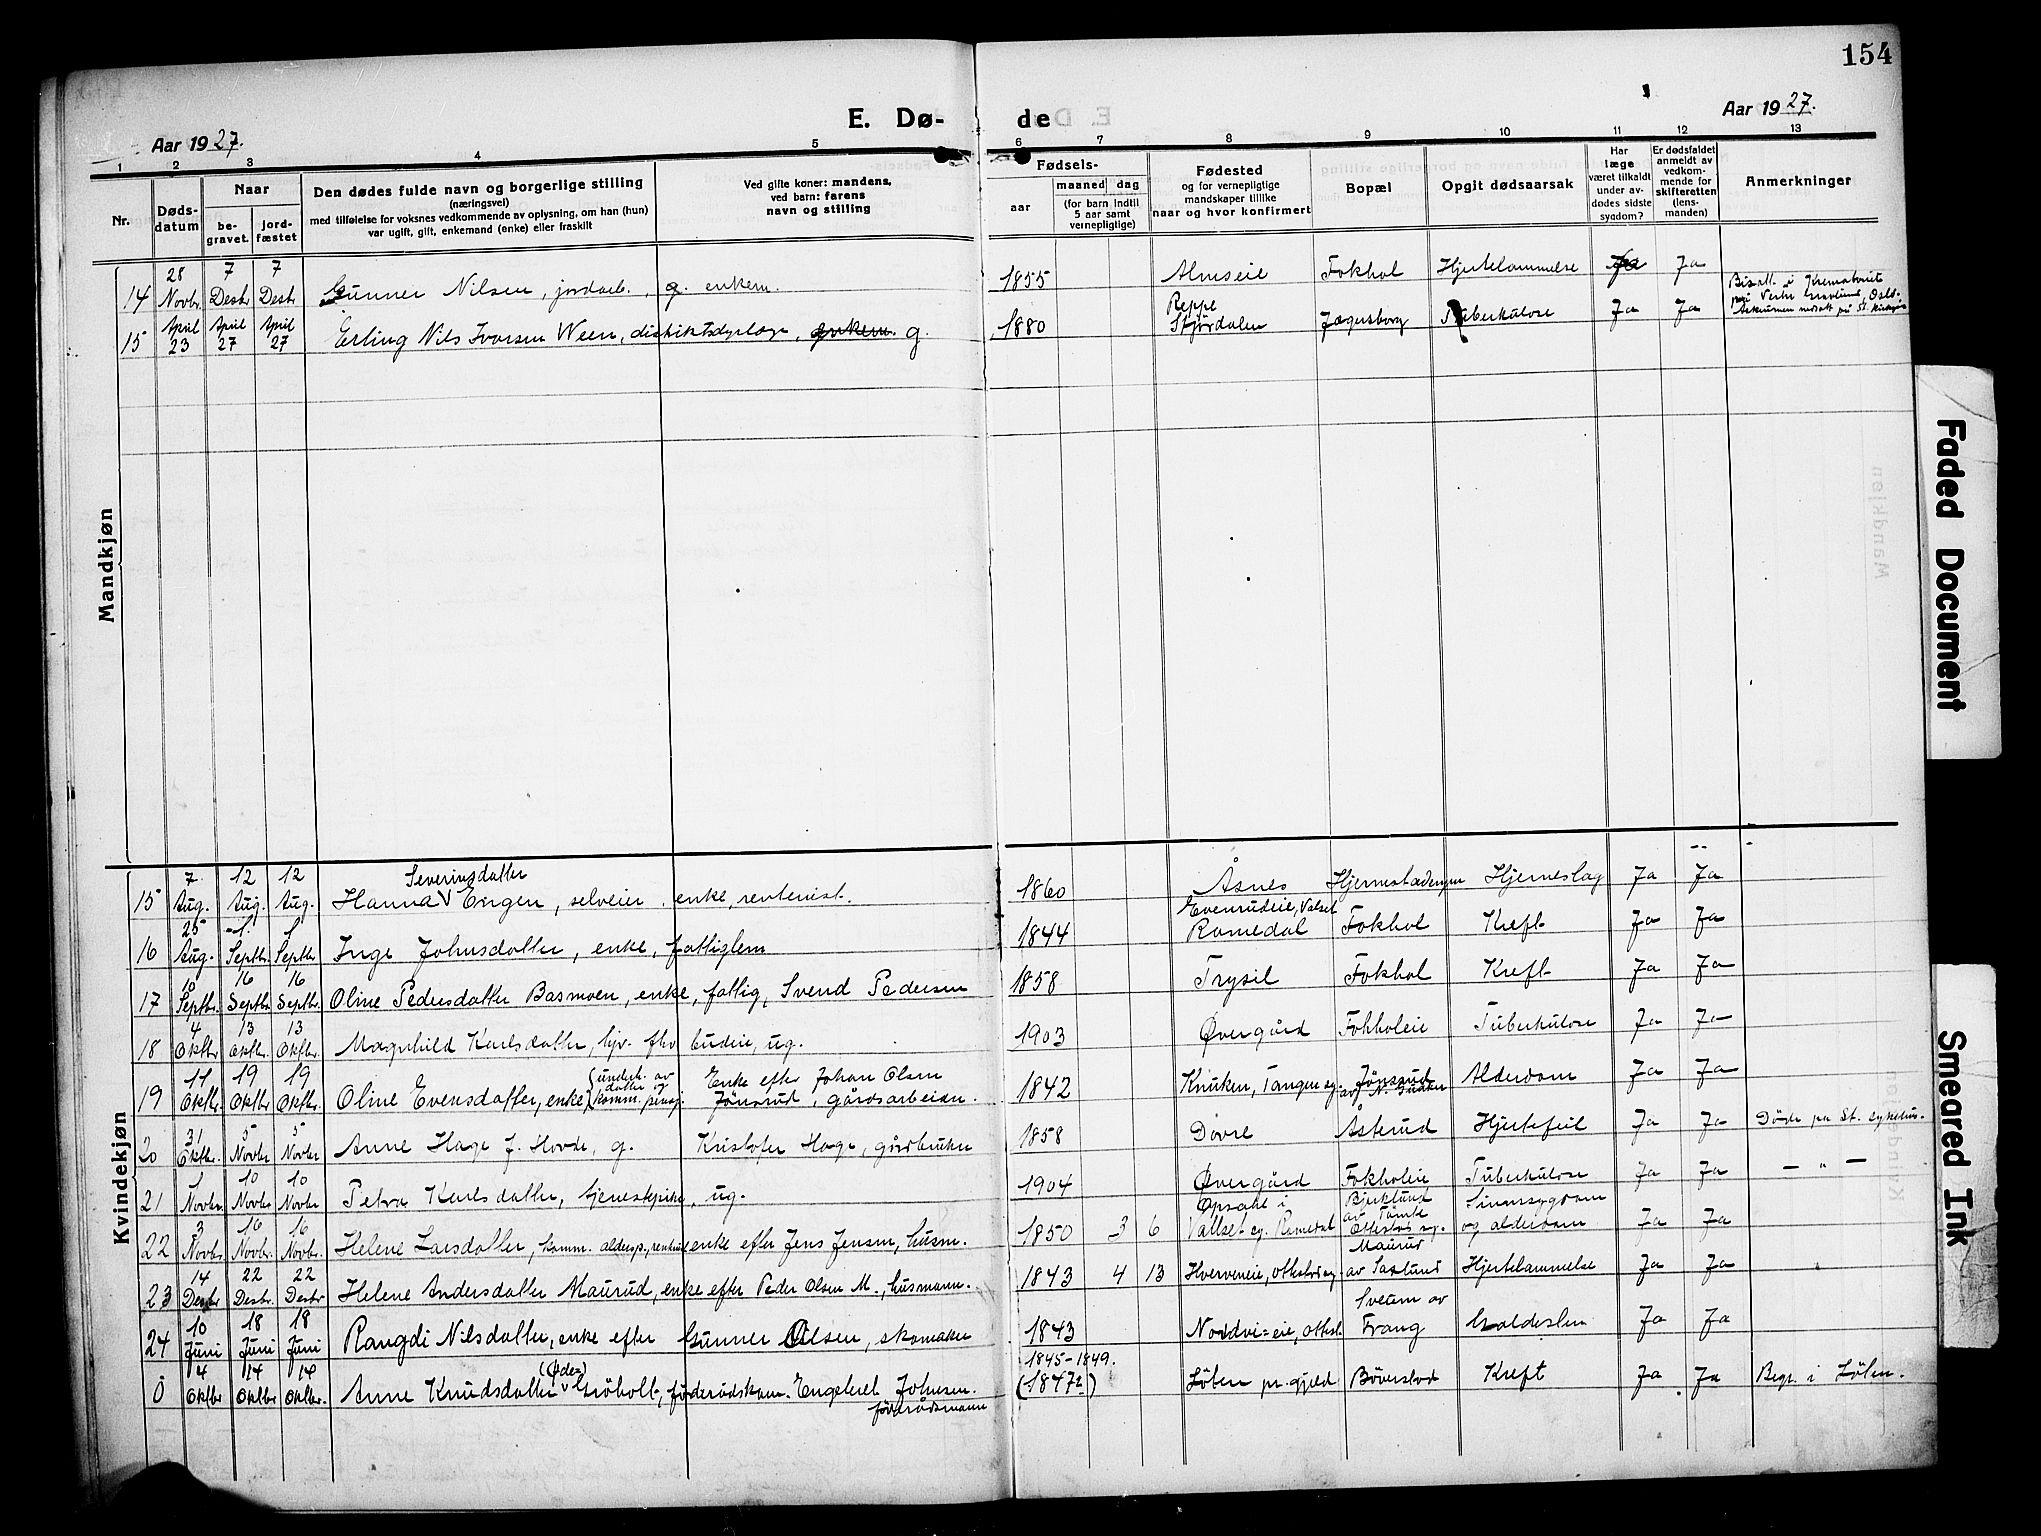 154
E. Dø- de
Aar 1927.
Aar 1927.
1 2 3 4 5 6 7 8 9 10 11 12 13
Nr.
Døds-datum
Naar
be-gravet.
jord-fæstet
Den dødes fulde navn og borgerlige stilling
(næringsvei)
med tilføielse for voksnes vedkommende av oplysning, om han (hun)
var ugift, gift, enkemand (enke) eller fraskilt
Ved gifte koner: mandens,
ved barn: farens
navn og stilling
Fødsels-
aar
maaned dag
(for barn indtil
5 aar samt
vernepligtige)
Fødested
og for vernepligtige
mandskaper tillike
naar og hvor konfirmert
Bopæl
Opgit dødsaarsak
Har
læge
været tilkaldt
under av-
dødes sidste
sygdom?
Er dødsfaldet
anmeldt av
vedkom-
mende for
skifteretten
(lens-
manden)
Anmerkninger
Mandkjøn
14 28 Novbr. 7 Desbr 7 Desbr Gunner Nilsen, jordarb., g. enkem. 1855 Almseie Fokhol Hjertelammelse Ja Ja
15 April 23 April 27 April 27 Erling Nils Ivarsen Ween, distriktsdyrlæge, enkem. g. 1880 Reppe Stjørdalen Jægersborg Tuberkulose Ja Ja
Kvindekjøn
15 7. Aug. 12 Aug. 12 Aug. Hanna Severinsdatter Engen, selveier, enke, rentenist. 1860 Åsnes Hjerneslag Ja Ja
16 25 Aug. 1. Septbr. 1 Septbr Inge Johnsdatter, enke, fattiglem 1844 Evenrudeie, Valset Romedal Fokhol Kreft Ja Ja
17 10 Septbr. 16 Septbr. 16 Septbr. Oline Pedersdatter Basmoen, enke, fattig, Svend Pedersen 1858 Trysil Fokhol Kreft Ja Ja
18 4 Oktbr. 13 Oktbr. 13 Oktbr. Magnhild Karlsdatter, hjv. fhv budeie, ug. 1903 Øvergård Fokholeie Tuberkulose Ja Ja
19 11 Oktbr. 19 Oktbr. 19 Oktbr. Oline Evensdatter, enke, (underh. av datter og komm. pensj. Enke efter Johan Olsen Jönsrud, gårdsarbeider. 1842 Knuken, Tangen sg. Jönsrud Alderdom Ja Ja
20 31 Oktbr. 5 Novbr 5 Novbr Anne Hage f. Hovde, g. Kristofer Hage, gårdbruker 1858 Dovre Åsterud Hjertefeil Ja Ja Døde på St. sykehus.
21 1 Novbr. 10 Novbr 10 Novbr Petra Karlsdatter, tjenestepike, ug. 1904 Øvergård Fokholeie Tuberkulose Ja Ja — " —
22 3 Novbr. 16 Novbr. 16 Novbr. Helene Larsdatter, komm. aldersp., enke efter Jens Jensen, husm. 1850 3 6 Opsahl i Vallset sg. Romedal Bjerklund Sinnssygdom og alderdom Ja Ja
23 14 Desbr 22 Desbr. 22 Desbr Helene Andersdatter Maurud, enke efter Peder Olsen M., husmann. 1843 4 13 Hverveneie, Ottestad sg. Maurud av Saxlund Hjertelammelse Ja Ja "
24 10 Juni 18 Juni 18 Juni Rangdi Nilsdatter, enke efter Gunner Olsen, skomaker 1843 Nordvi-eie, Ottest. Sveum av Frang Ja Ja
0 4 Oktbr 14 Oktbr 14 Oktbr. Anne Knudsdatter (Øde) Gröholt, føderådskone. Engebret Johnsen. føderådsmann 1845-1849. (1847?) Löten pr.gjeld Böverstad Kreft Ja Ja Begr. i Löten.
Faded Document
Smeared Ink